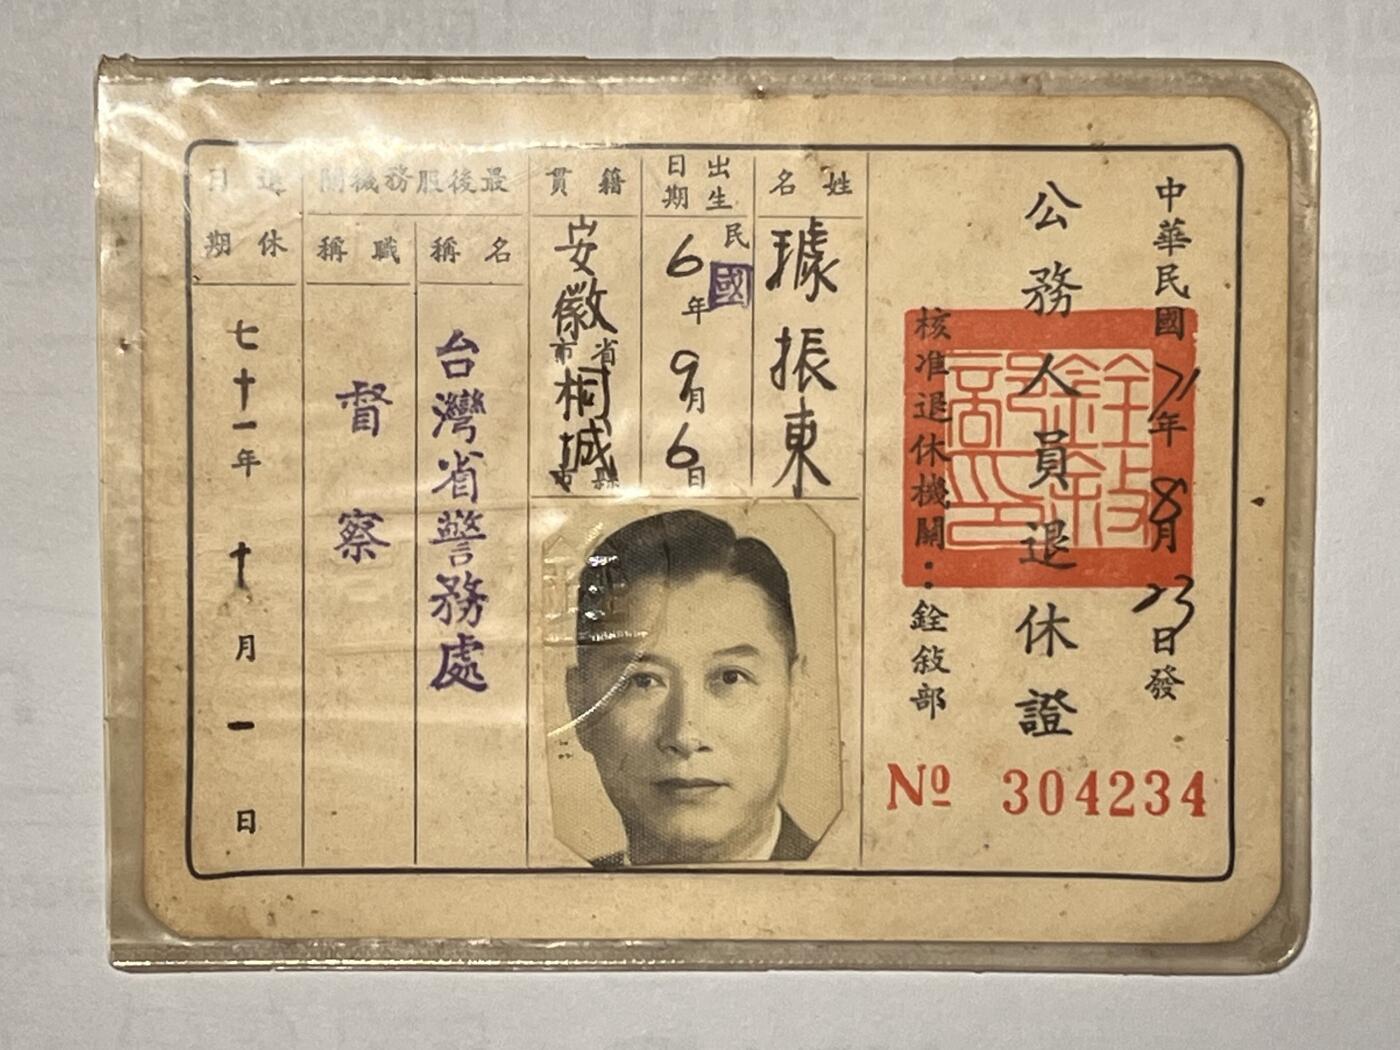 中華民國71年8月23日發
公務人員退休證
核准退休機關：銓敍部
銓敍部印
№ 304234
姓名
璩振東
出生日期
民國6年9月6日
籍貫
安徽省市
桐城縣市
最後服務機關
名稱
台灣省警務處
職稱
督察
退休日期
七十一年十月一日